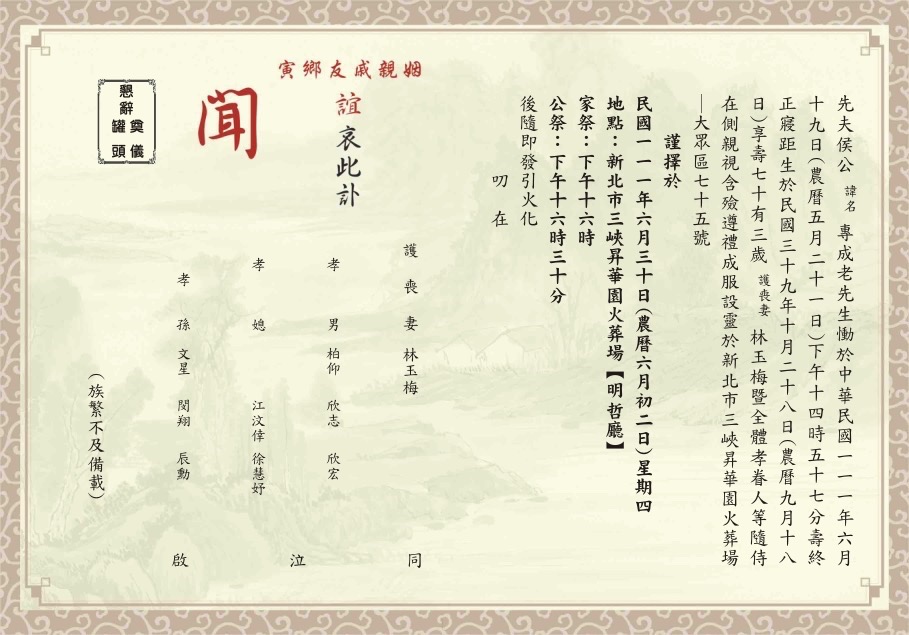 先夫侯公 諱名 專成老先生慟於中華民國一一一年六月
十九日(農曆五月二十一日)下午十四時五十七分壽終
正寢距生於民國三十九年十月二十八日(農曆九月十八
日)享壽七十有三歲 護喪妻 林玉梅暨全體孝眷人等隨侍
在側親視含殮遵禮成服設靈於新北市三峽昇華園火葬場
—大眾區七十五號
謹擇於
民國一一一年六月三十日(農曆六月初二日)星期四
地點：新北市三峽昇華園火葬場【明哲廳】
家祭：下午十六時
公祭：下午十六時三十分
後隨即發引火化
叨 在
寅鄉友戚親姻
誼哀此訃
聞
懇辭
奠儀
罐頭
護喪妻 林玉梅
孝男 柏仰 欣志 欣宏
孝媳 江汶偉 徐慧妤
孝孫 文星 閔翔 辰勳
同
泣
啟
(族繁不及備載)